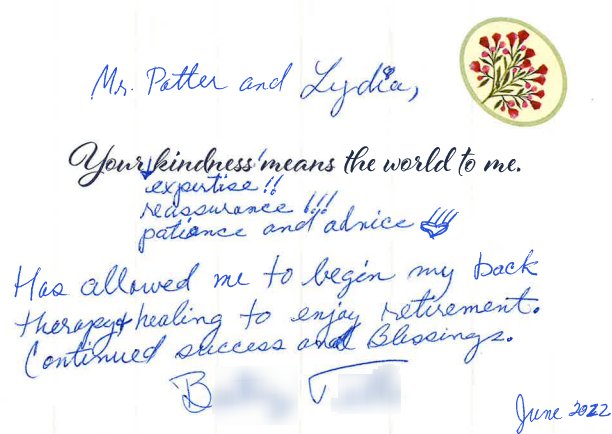 Mr. Patter and Lydia,
Your kindness ! means the world to me.
expertise !!
reassurance !!!
patience and advice !!!!
Has allowed me to begin my back
therapy + healing to enjoy retirement.
Continued success and Blessings.
B T
June 2022